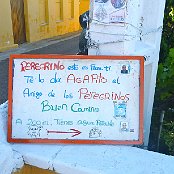 PEREGRINO esto es para ti
Te lo da AGAPITO el
Amigo de los PEREGRINOS
Buen Camino
A 200m. Tienes agua